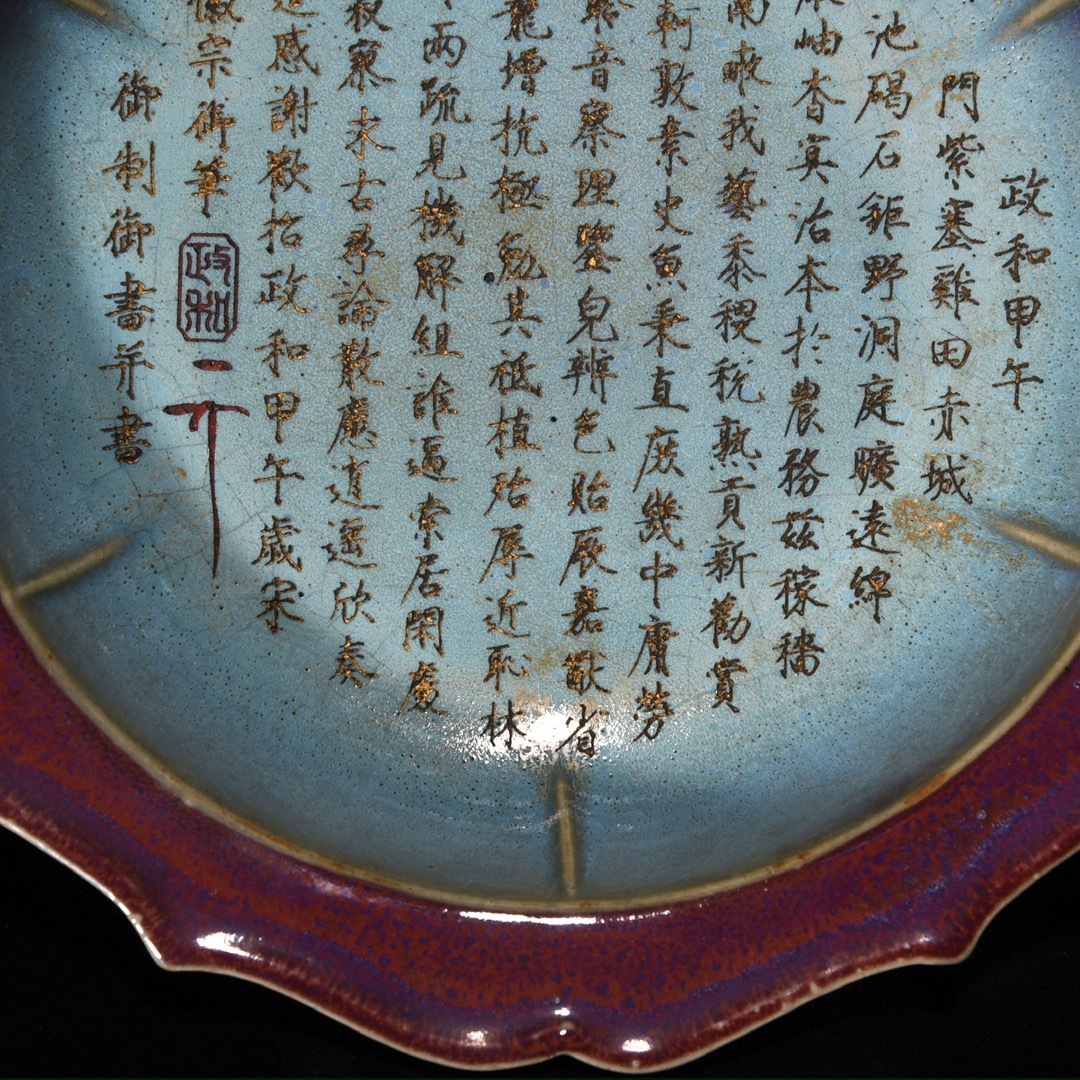 政和甲午
門紫塞雞田赤城
池碣石鉅野洞庭曠遠綿
岫杳冥治本於農務茲稼穡
南畝我藝黍稷稅熟貢新勸賞
軻敦素史魚秉直庶幾中庸勞
聆音察理鑒皃辨色貽厥嘉猷省
寵增抗極勉其祗植殆辱近恥林
兩疏見機解組誰逼索居閑處
寂寥求古尋論散慮逍遙欣奏
感謝歡招政和甲午歲宋
徽宗御筆
政和
御制御書并書